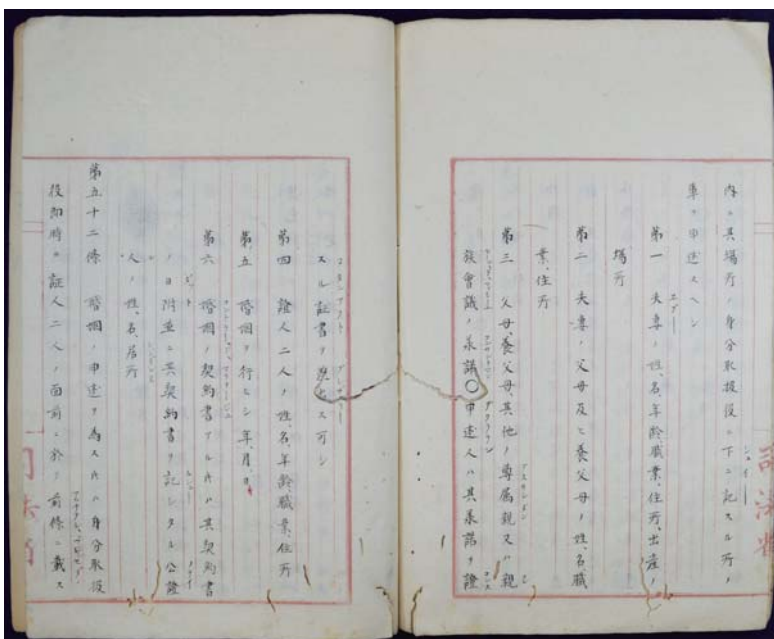 内ニ其場所ノ身分取扱役ニ下ニ記スル所ノ
事ヲ申述スヘシ
第一 夫妻ノ姓、名、年齢、職業、住所、出産ノ
場所
第二 夫妻ノ父母及ヒ養父母ノ姓、名、職
業、住所
第三 父母、養父母、其他ノ尊属親又ハ親
族會議ノ承諾○申述人ハ其承諾ヲ證
スル証書ヲ差出ス可シ
第四 證人二人ノ姓、名、年齢、職業、住所
第五 婚姻ヲ行ヒシ年、月、日
第六 婚姻ノ契約書アル片ハ其契約書
ノ日附並ニ其契約書ヲ記シタル公證
人ノ姓、名、居所
第五十二條 婚姻ノ申述ヲ為ス片ハ身分取扱
役即時ニ証人二人ノ面前ニ於テ前條ニ載ス
司法省